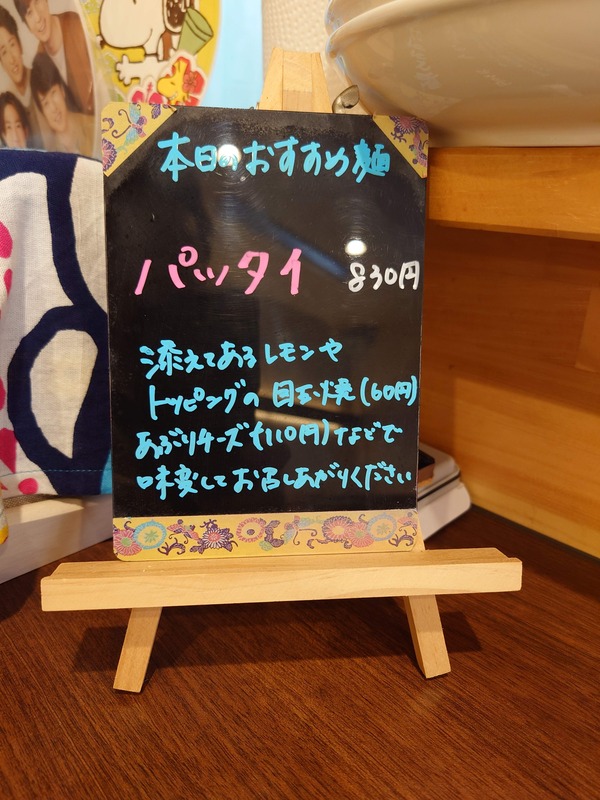 本日のおすすめ麺
パッタイ 830円
添えてあるレモンや
トッピングの目玉焼(60円)
あぶりチーズ(110円)などで
味変してお召しあがりください